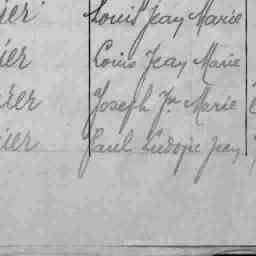 ier Louis Jean Marie
ier Louis Jean Marie
ier Joseph Jn Marie
ier Paul Jean